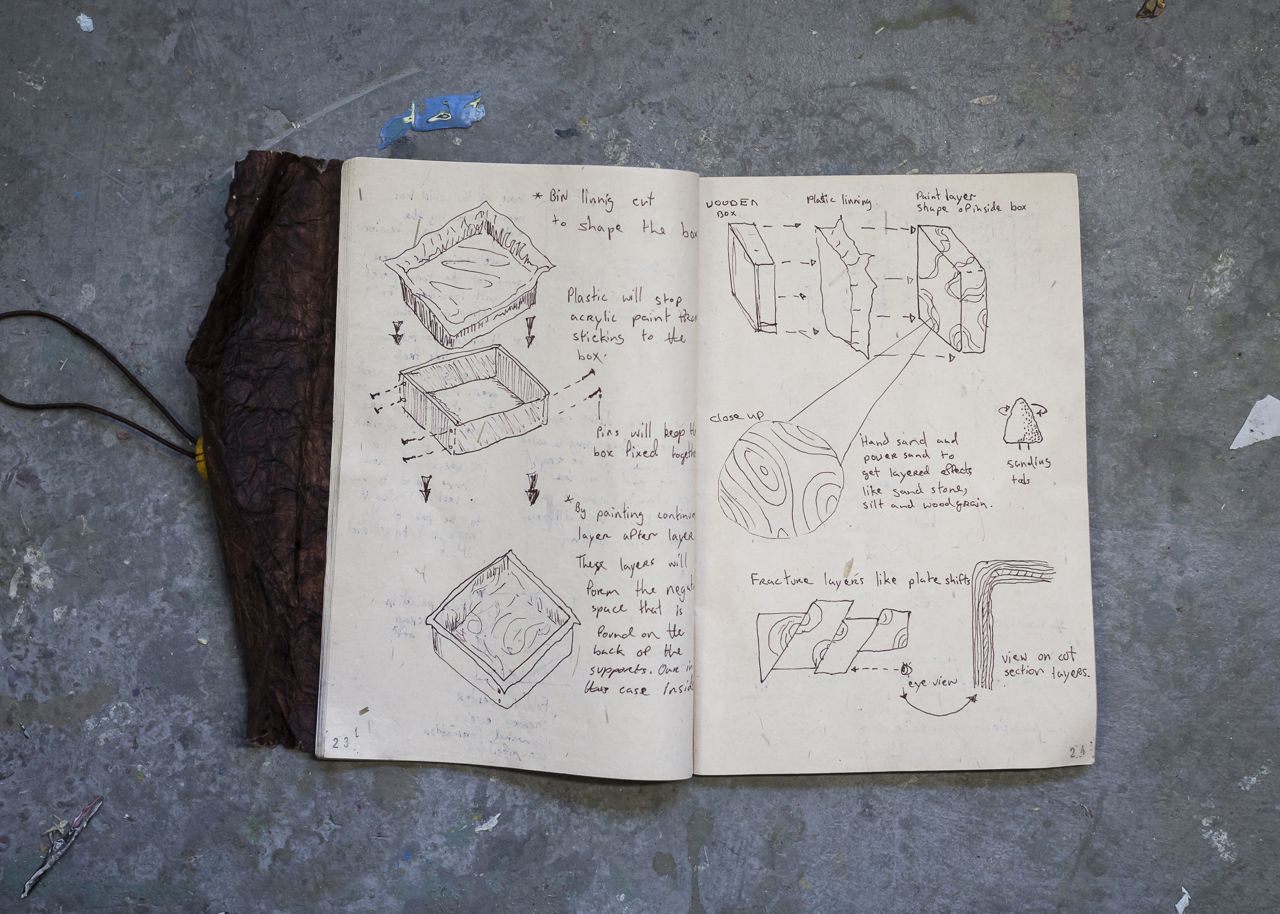 * BIN linnig cut
to shape the box
Plastic will stop
acrylic paint from
sticking to the
box.
Pins will keep th
box fixed togeth
*
By painting continu
layer after layer
These layers will
form the negat
space that is
found on the
back of the
supports. Our in
this case insid
23
WOODEN
BOX
Plastic linning
Paint layer
shape of inside box
close up
Hand sand and
power sand to
get layered effects
like sand stone,
silt and woodgrain.
sanding
Fracture layers like plate shifts
view on cut
section layers.
eye view
24